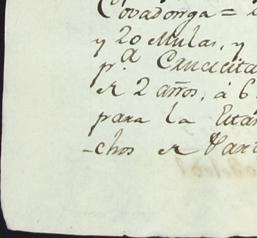 Covadonga =
y 20 Mulas, y
p.ª Crucecita
de 2 años, á 6
para la Están
-chos de Vari